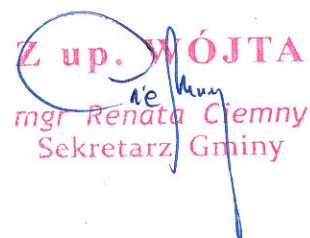 Z up. WÓJTA
mgr Renata Ciemny
Sekretarz Gminy